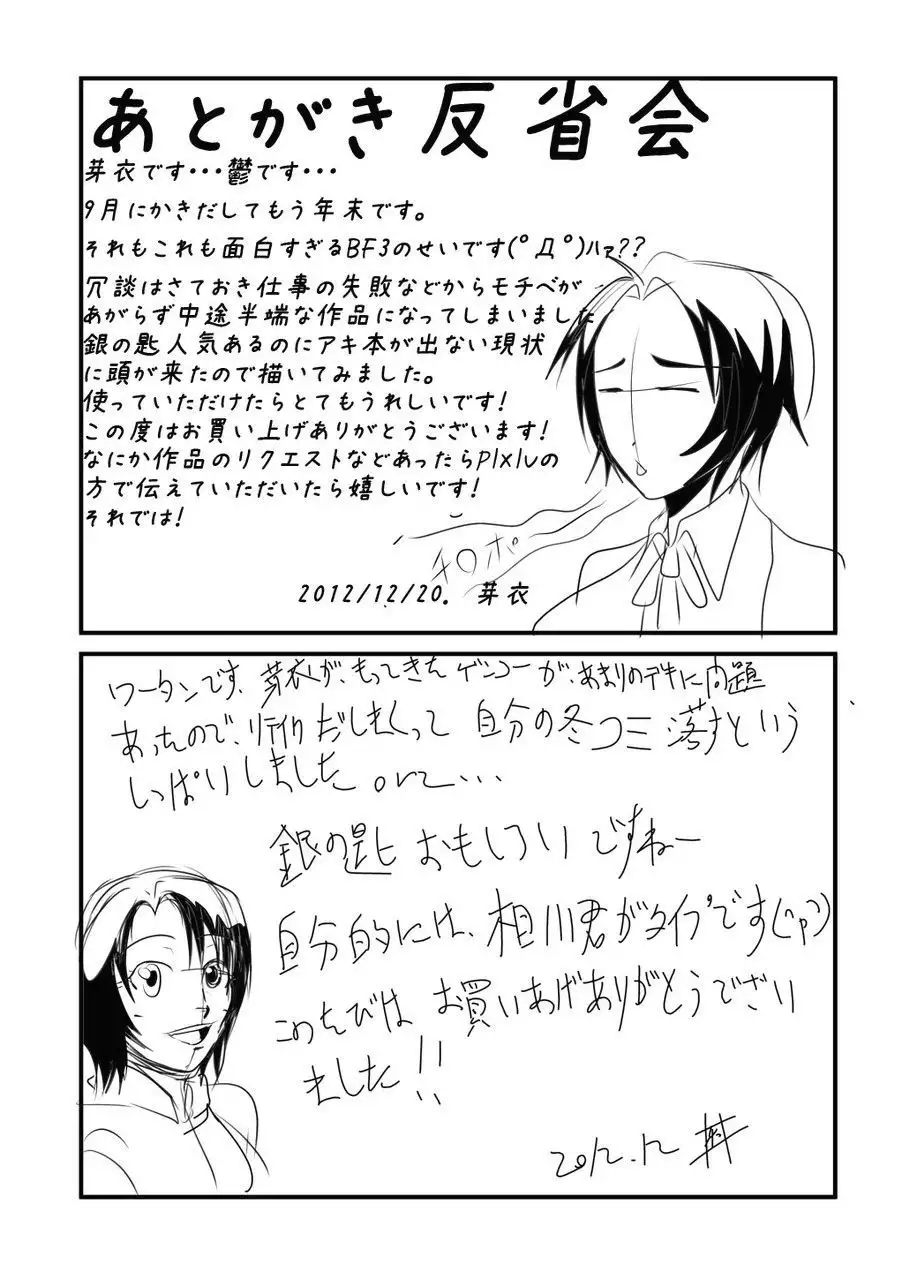 あとがき反省会
芽衣です・・・鬱です・・・
9月にかきだしてもう年末です。
それもこれも面白すぎるBF3のせいです(ﾟДﾟ)ﾊｧ??
冗談はさておき仕事の失敗などからモチベが
あがらず中途半端な作品になってしまいました
銀の匙人気あるのにアキ本が出ない現状
に頭が来たので描いてみました。
使っていただけたらとてもうれしいです!
この度はお買い上げありがとうございます!
なにか作品のリクエストなどあったらPIxIVの
方で伝えていただいたら嬉しいです!
それでは!
チロポ
2012/12/20. 芽衣
ワータンです、芽衣が、もってきたゲンコーが、あまりのデキに問題
あったので、リテイクだしまくって自分の冬コミ落すという
しっぱりしました orz...
銀の匙おもしろいですねー
自分的には、相川君がタイプです
このたびはお買いあげありがとうござい
ました!!
2012.12